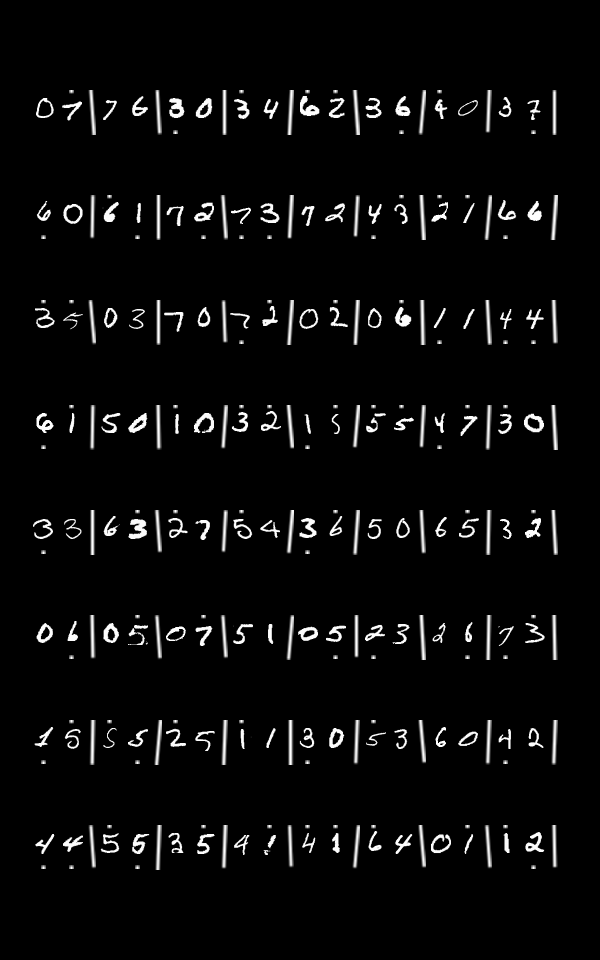 0 7 | 7 6 | 3 0 | 3 4 | 6 2 | 3 6 | 4 0 | 3 7 |
6 0 | 6 1 | 7 2 | 7 3 | 7 2 | 4 3 | 2 1 | 6 6 |
3 5 | 0 3 | 7 0 | 7 2 | 0 2 | 0 6 | 1 1 | 4 4 |
6 1 | 5 0 | 1 0 | 3 2 | 1 5 | 5 5 | 4 7 | 3 0 |
3 3 | 6 3 | 2 7 | 5 4 | 3 6 | 5 0 | 6 5 | 3 2 |
0 6 | 0 5 | 0 7 | 5 1 | 0 5 | 2 3 | 2 6 | 7 3 |
1 5 | 5 5 | 2 5 | 1 1 | 3 0 | 5 3 | 6 0 | 4 2 |
4 4 | 5 5 | 3 5 | 4 1 | 4 1 | 6 4 | 0 1 | 1 2 |